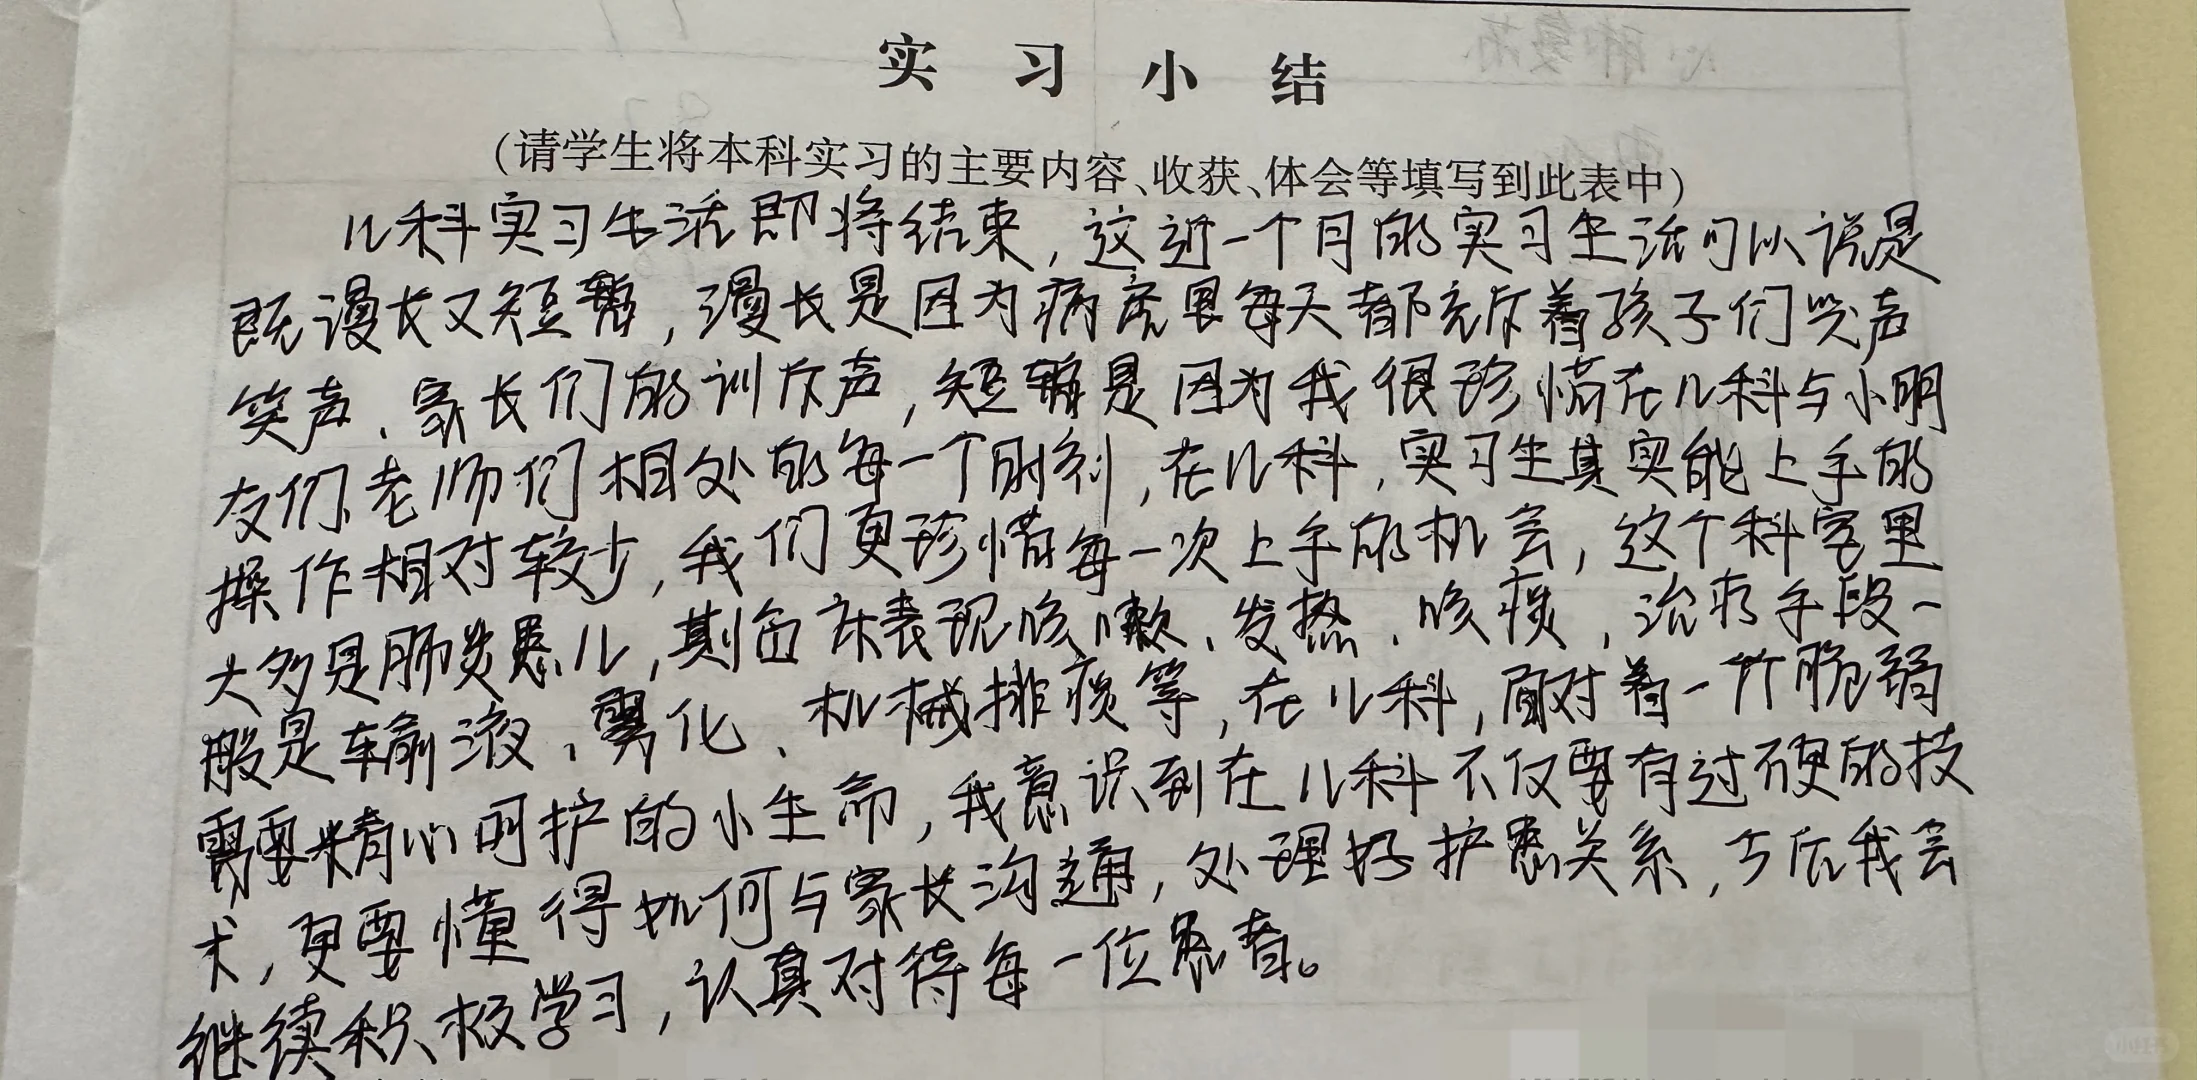 实习小结
(请学生将本科实习的主要内容、收获、体会等填写到此表中)
儿科实习生活即将结束,这近一个月的实习生活可以说是
既漫长又短暂,漫长是因为病房里每天都充斥着孩子们哭声
笑声、家长们的训斥声,短暂是因为我很珍惜在儿科与小朋
友们、老师们相处的每一个时刻,在儿科,实习生其实能上手的
操作相对较少,我们更珍惜每一次上手的机会,这个科室里
大多是肺炎患儿,其临床表现咳嗽、发热、咳痰,治疗手段一
般是输液、雾化、机械排痰等,在儿科,面对着一个脆弱
需要精心呵护的小生命,我意识到在儿科不仅要有过硬的技
术,更要懂得如何与家长沟通,处理好护患关系,今后我会
继续积极学习,认真对待每一位患者。
小红书